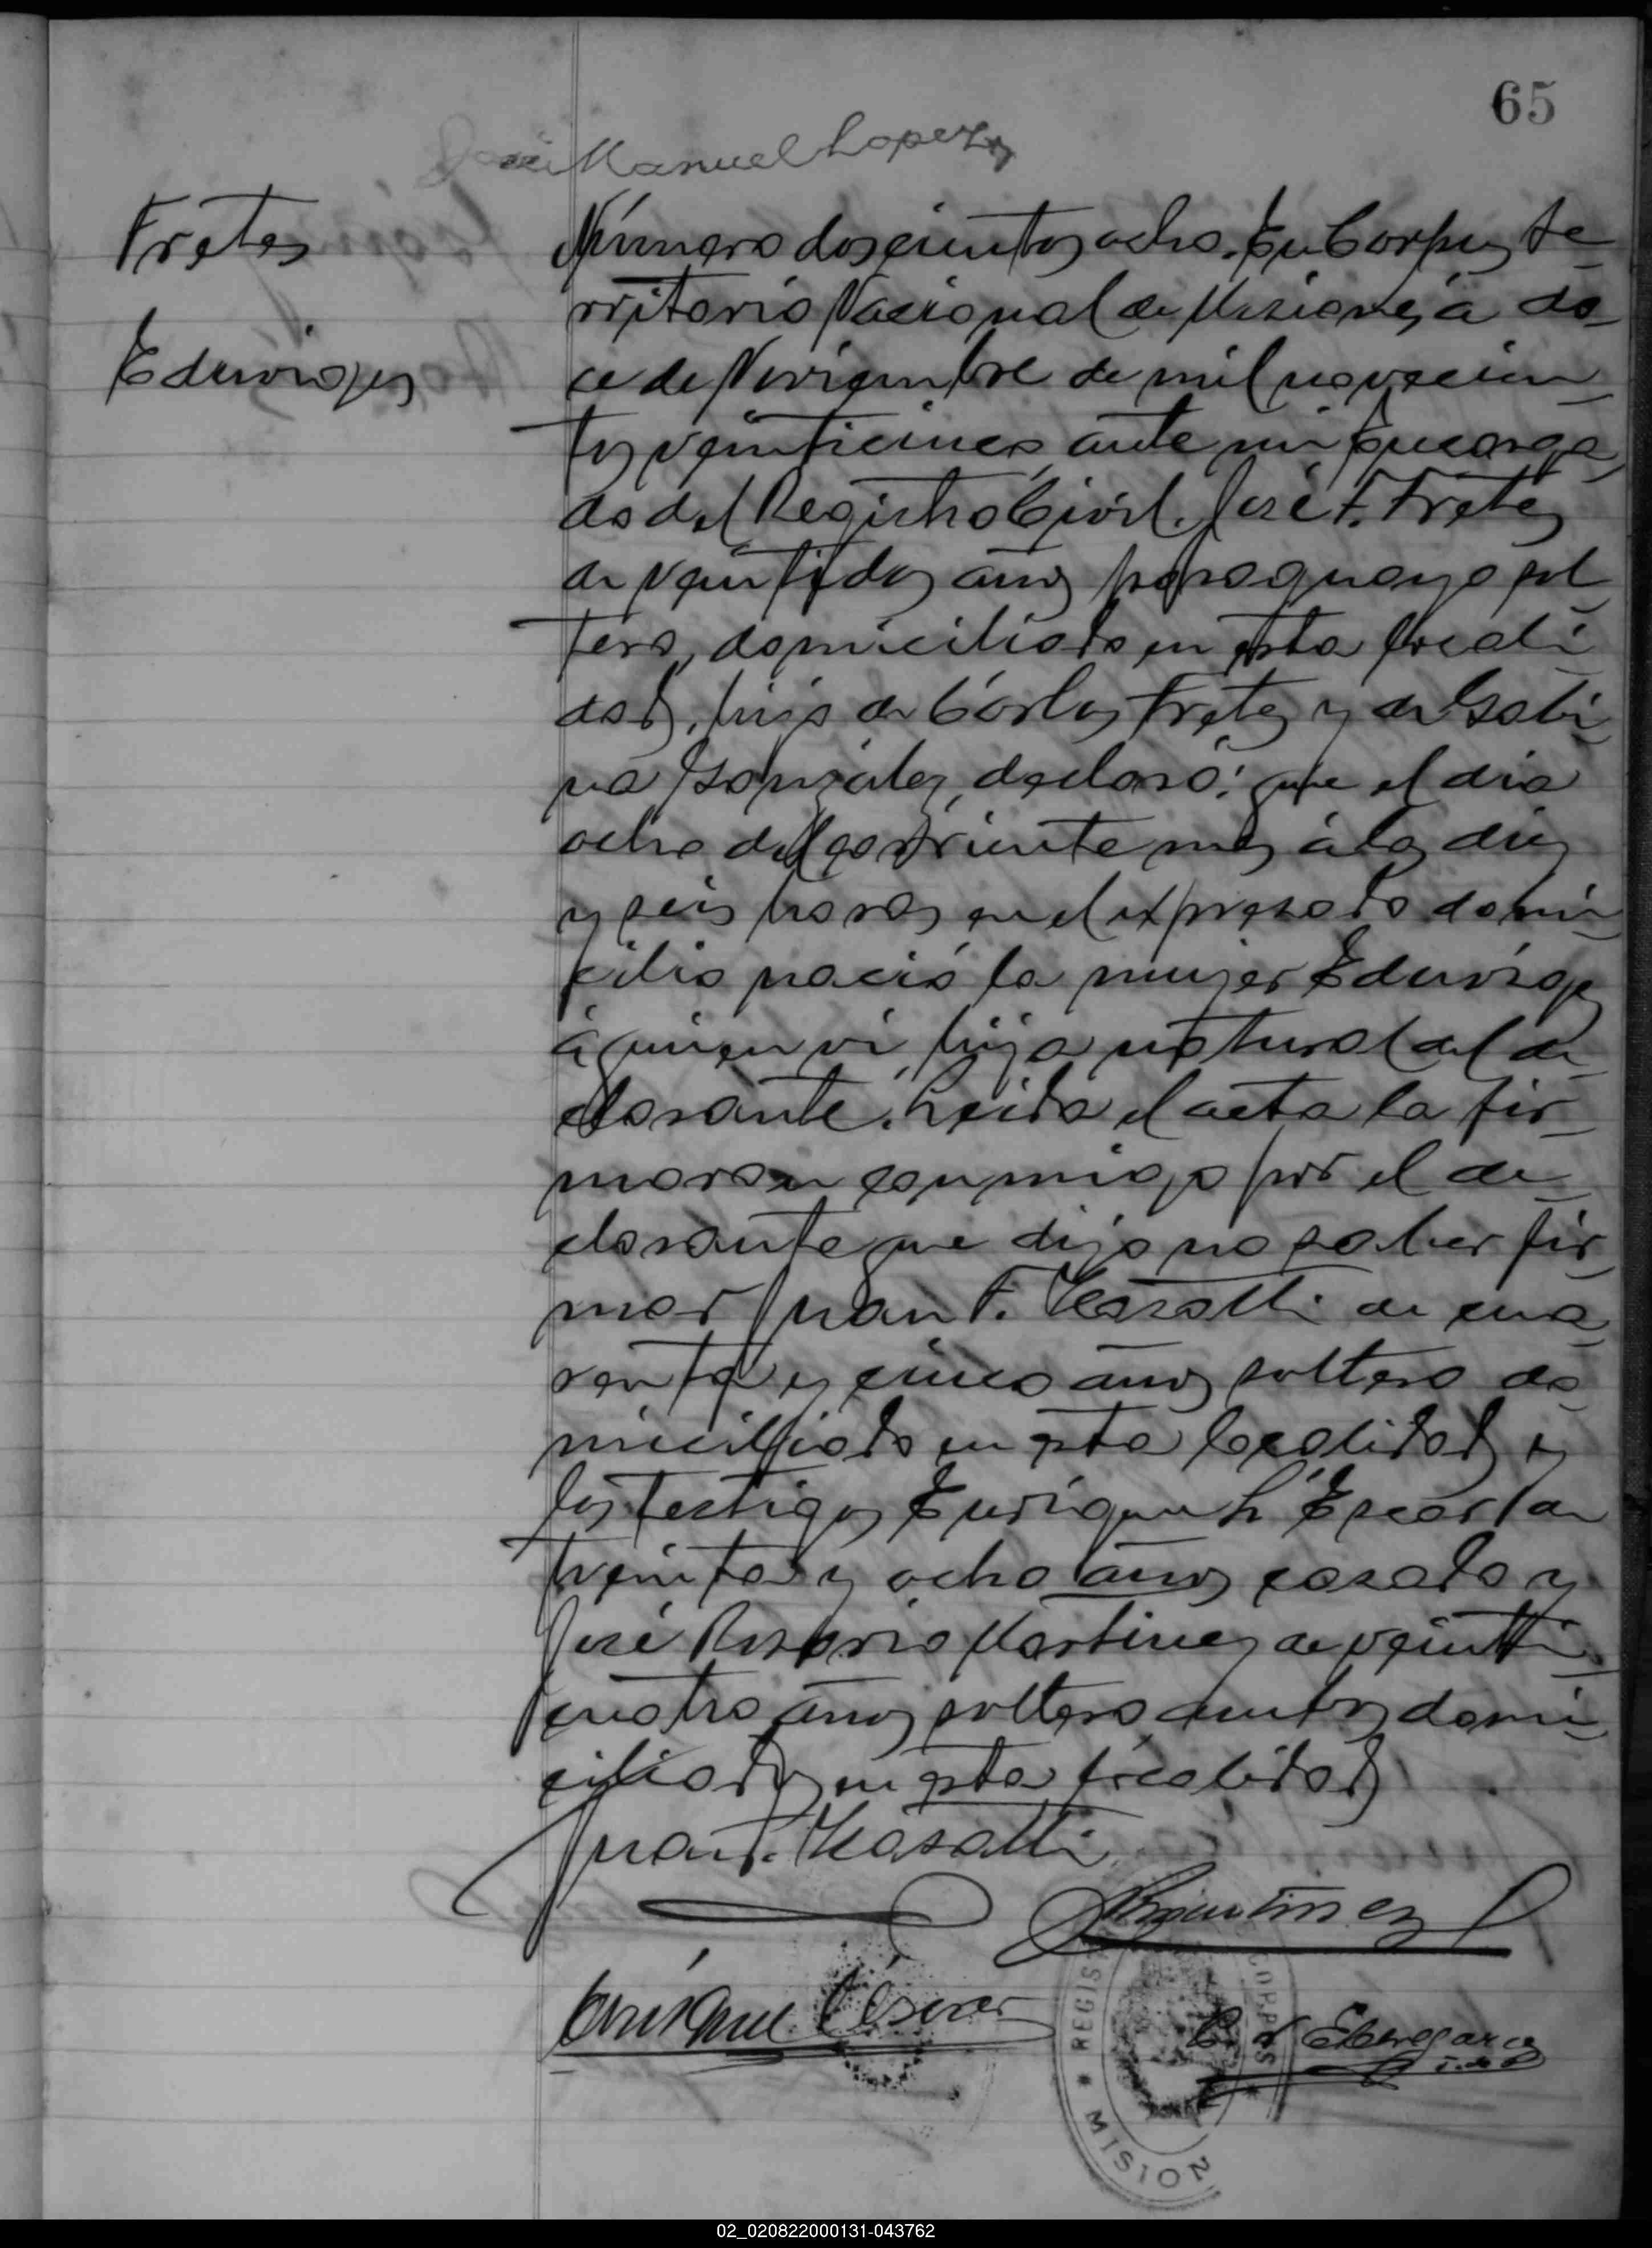 65
José Manuel Lopez
Fretes
Eduviges
Número doscientos ocho. En Corpus te-
rritorio Nacional de Misiones, a do-
ce de Noviembre de mil novecien-
tos veinticinco, ante mi Encarga-
do del Registro Civil. José F. Fretes
de veintidos años paraguayo sol-
tero, domiciliado en esta locali-
dad, hijo de Cárlos Fretes y de Gabi-
na González, declaró: que el dia
ocho del corriente mes á las diez
y seis horas en el expresado domi-
cilio nació la mujer Eduviges
á quien vi, hija natural del de-
clarante. Leida el acta la fir-
maron conmigo por el de-
clarante que dijo no saber fir-
mar Juan F. de cua-
renta y cinco años soltero do-
miciliado en esta localidad y
los testigos Enrique L'Escar de
treinta y ocho años casado y
José Rosario Martinez de veinti-
cuatro años soltero ambos domi-
ciliados en esta localidad
Juan F.
Martinez
Enrique
REGIS
CORPUS
MISION
02_020822000131-043762